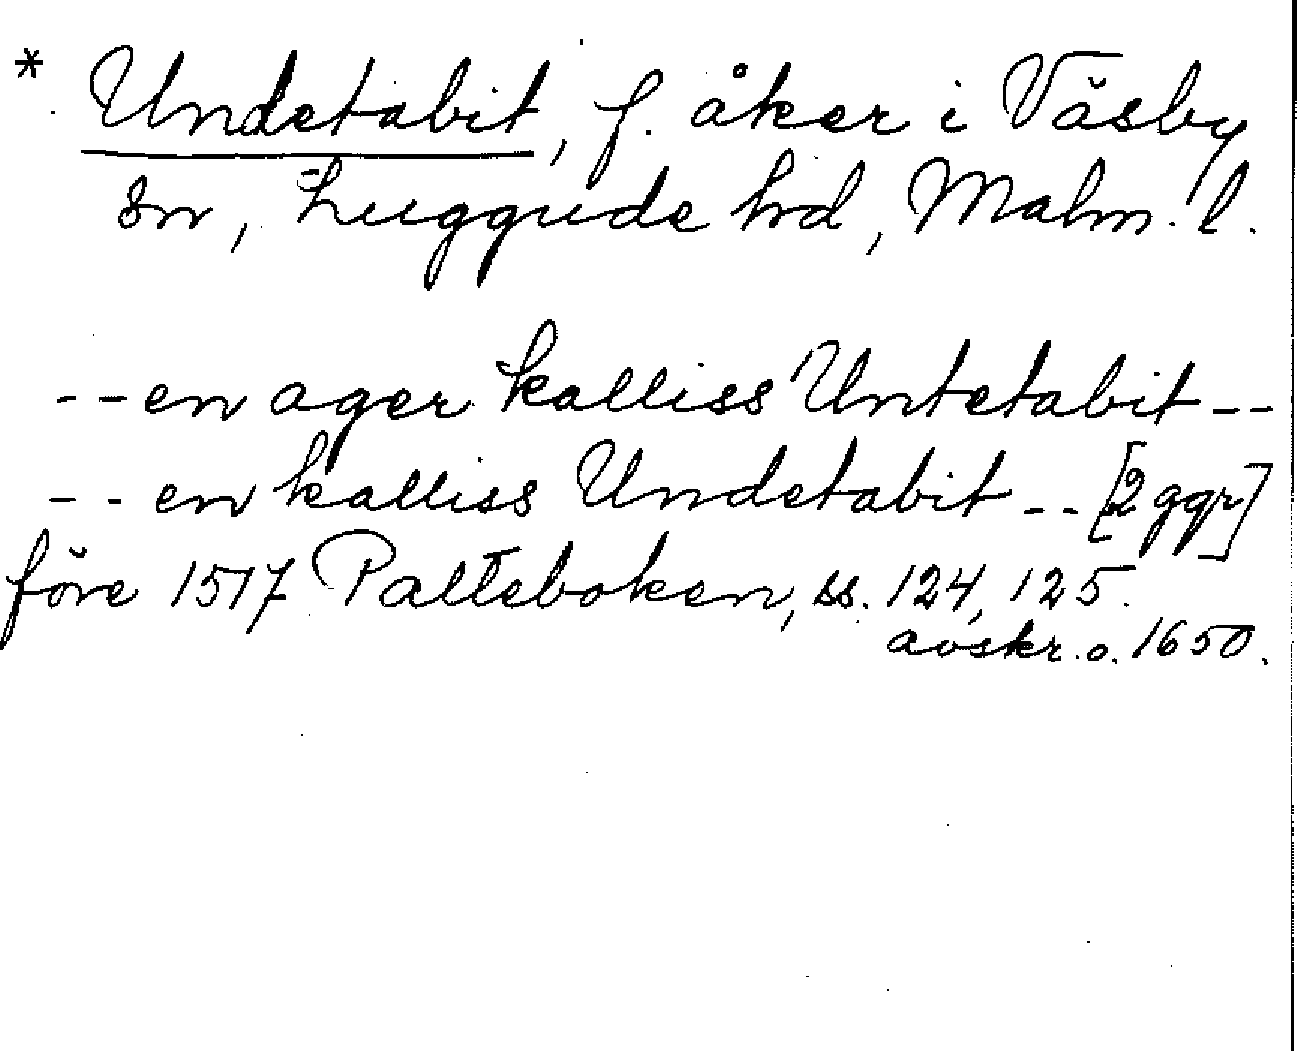 * Undetabit, f. åker i Väsby
sn, Luggude hd, Malm. l.
-- en ager kalliss Untetabit --
-- en kalliss Undetabit -- [2 ggr]
före 1517 Palteboken, ss. 124, 125.
avskr. o. 1650.